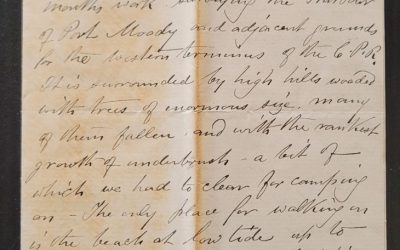 months work surveying the Harbour
of Port Moody and adjacent grounds
for the western terminus of the C.P.R.
It is surrounded by high hills wooded
with trees of enormous size, many
of them fallen, and with the rankest
growth of underbrush - a bit of
which we had to clear for camping
on - The only place for walking on
is the beach at low tide up to